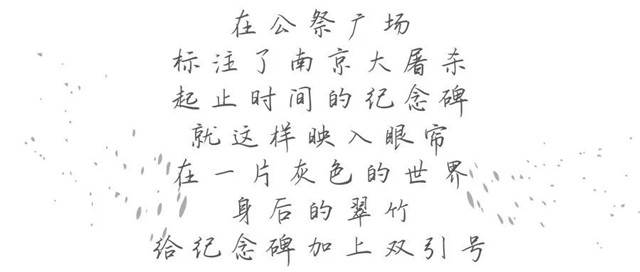 在公祭广场
标注了南京大屠杀
起止时间的纪念碑
就这样映入眼帘
在一片灰色的世界
身后的翠竹
给纪念碑加上双引号